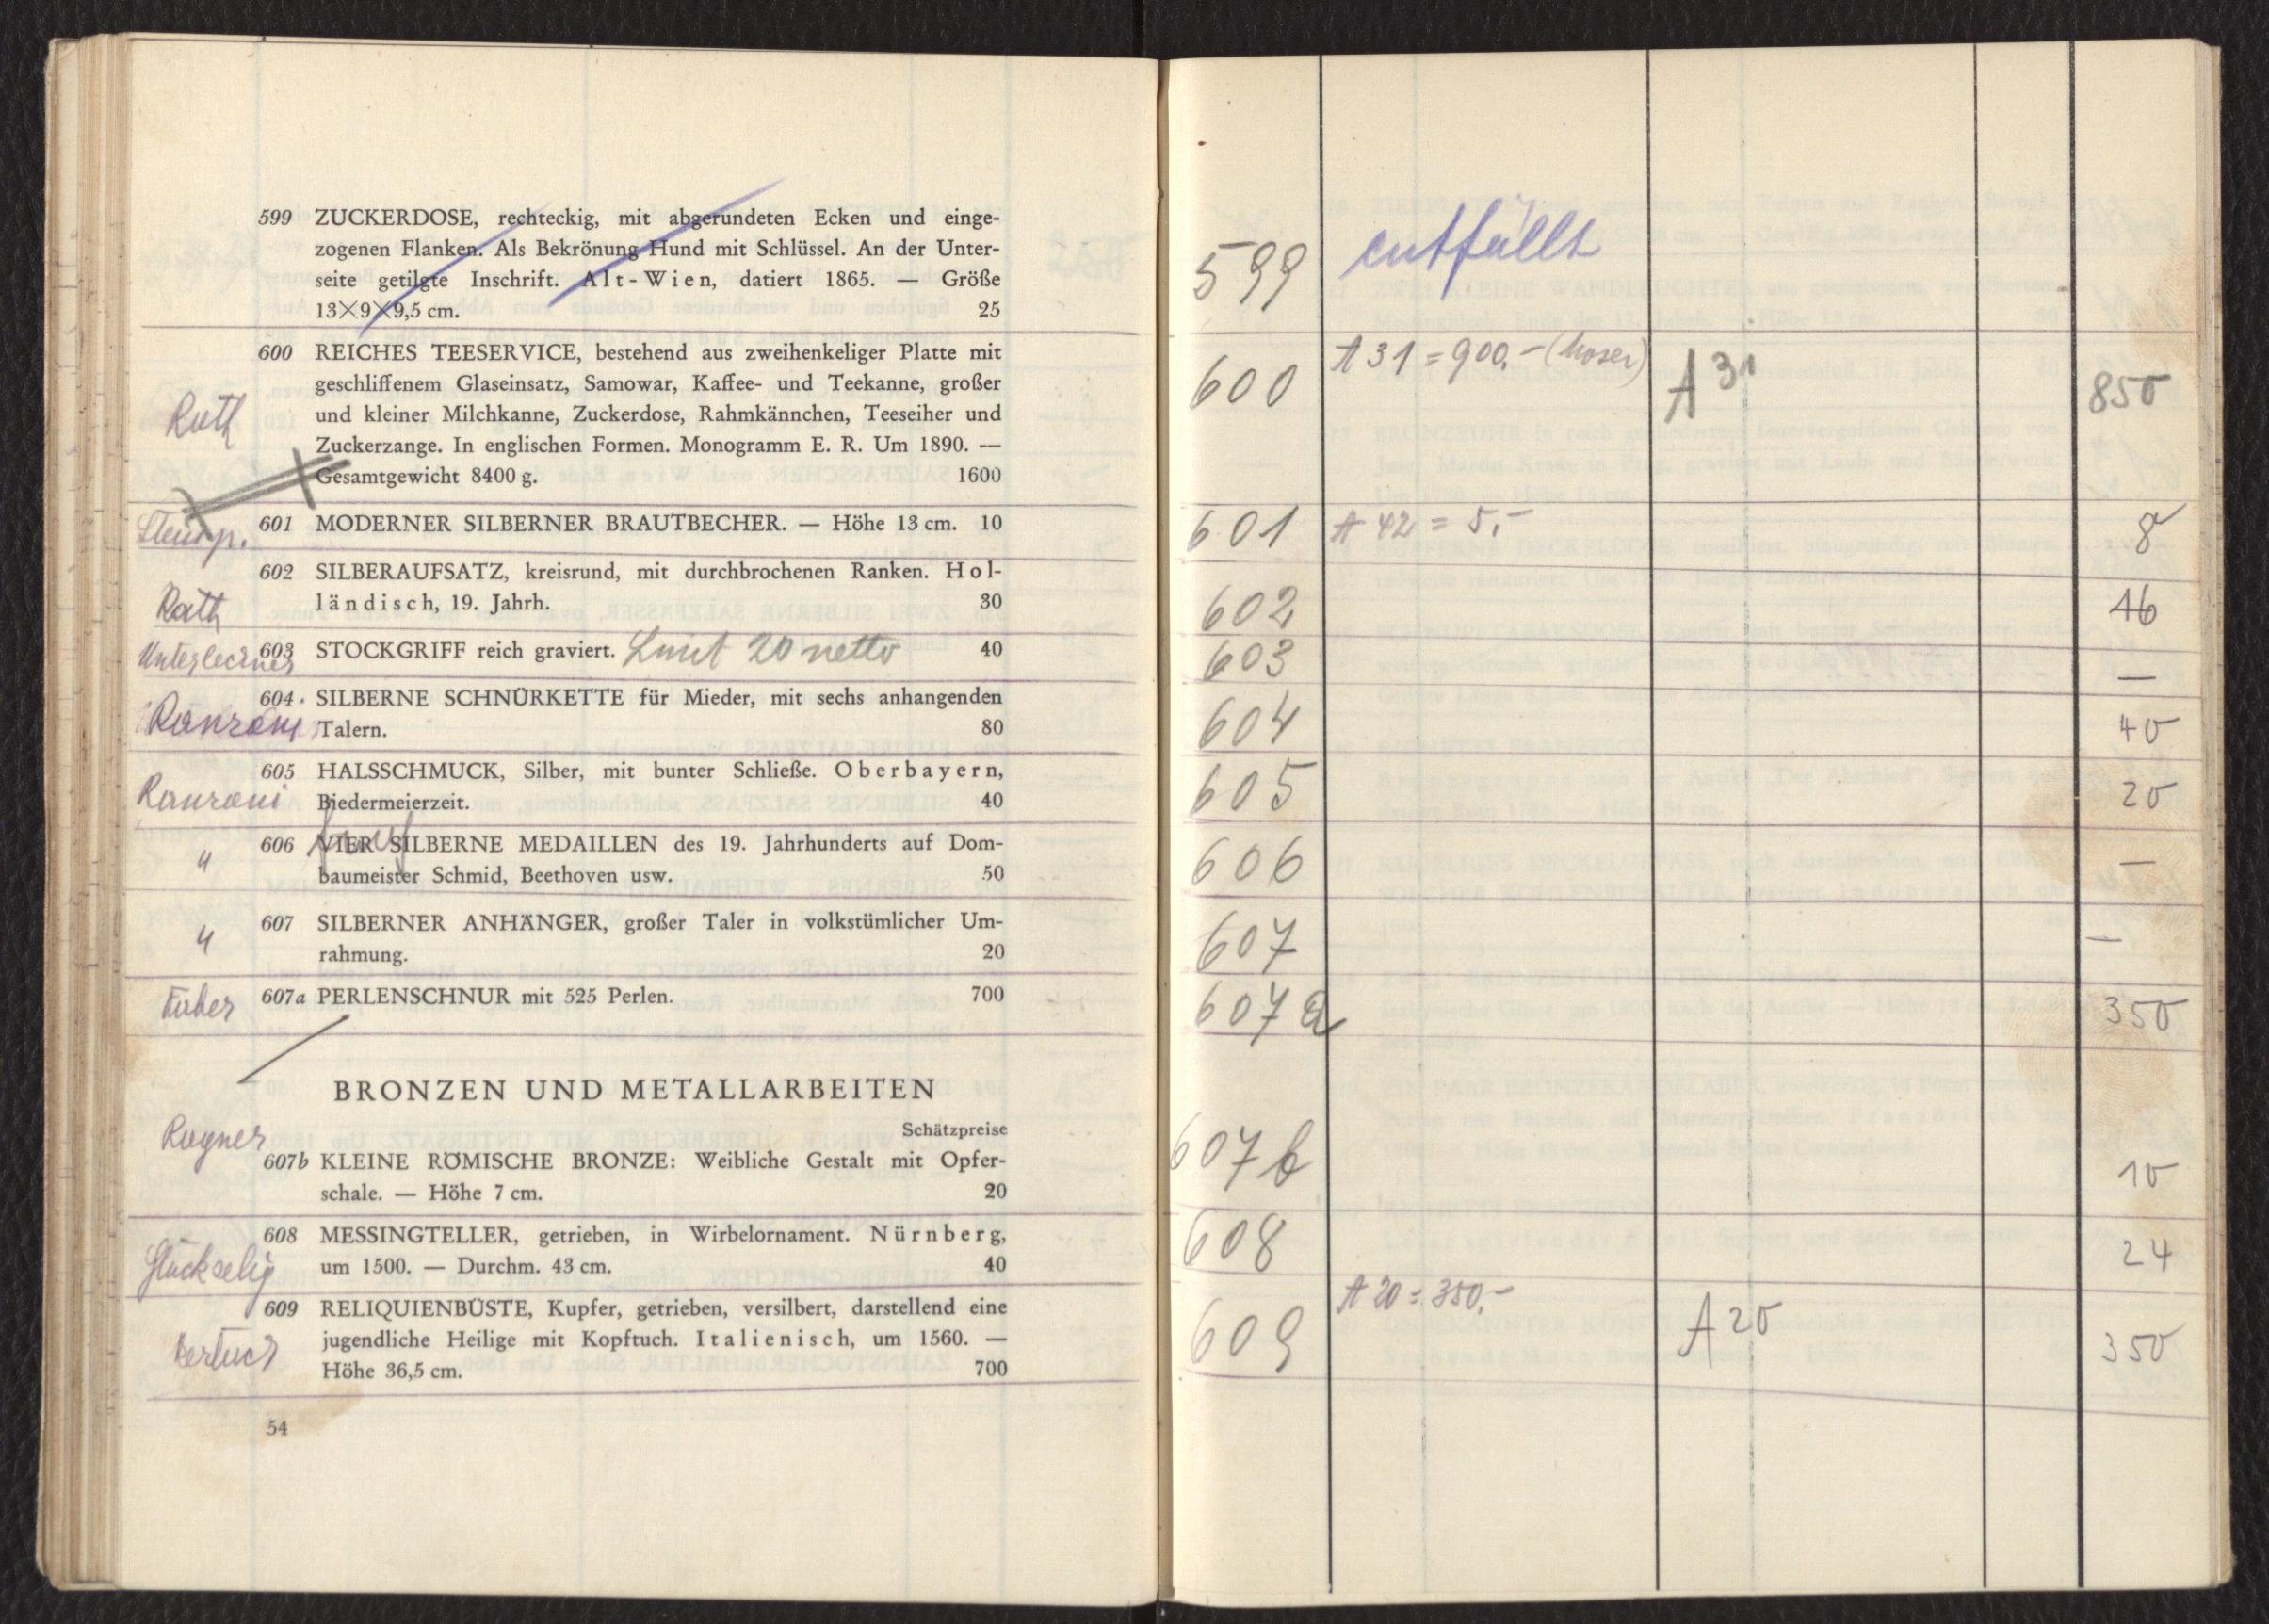 599 ZUCKERDOSE, rechteckig, mit abgerundeten Ecken und einge-
zogenen Flanken. Als Bekrönung Hund mit Schlüssel. An der Unter-
seite getilgte Inschrift. Alt-Wien, datiert 1865. — Größe
13×9×9,5 cm. 25
600 REICHES TEESERVICE, bestehend aus zweihenkeliger Platte mit
geschliffenem Glaseinsatz, Samowar, Kaffee- und Teekanne, großer
Roth und kleiner Milchkanne, Zuckerdose, Rahmkännchen, Teeseiher und
Zuckerzange. In englischen Formen. Monogramm E. R. Um 1890. —
Gesamtgewicht 8400 g. 1600
601 MODERNER SILBERNER BRAUTBECHER. — Höhe 13 cm. 10
602 SILBERAUFSATZ, kreisrund, mit durchbrochenen Ranken. Hol-
Rath ländisch, 19. Jahrh. 30
Unterlechner 603 STOCKGRIFF reich graviert. Limit 20 netto 40
604 SILBERNE SCHNÜRKETTE für Mieder, mit sechs anhangenden
Ranzoni Talern. 80
605 HALSSCHMUCK, Silber, mit bunter Schließe. Oberbayern,
Ranzoni Biedermeierzeit. 40
fünf
" 606 VIER SILBERNE MEDAILLEN des 19. Jahrhunderts auf Dom-
baumeister Schmid, Beethoven usw. 50
" 607 SILBERNER ANHÄNGER, großer Taler in volkstümlicher Um-
rahmung. 20
Faber 607a PERLENSCHNUR mit 525 Perlen. 700
BRONZEN UND METALLARBEITEN
Rogner Schätzpreise
607b KLEINE RÖMISCHE BRONZE: Weibliche Gestalt mit Opfer-
schale. — Höhe 7 cm. 20
608 MESSINGTELLER, getrieben, in Wirbelornament. Nürnberg,
Glückselig um 1500. — Durchm. 43 cm. 40
609 RELIQUIENBÜSTE, Kupfer, getrieben, versilbert, darstellend eine
jugendliche Heilige mit Kopftuch. Italienisch, um 1560. —
Höhe 36,5 cm. 700
54
599 entfällt
600 A 31 = 900.- (Moser) A 31 850
601 A 42 = 5,- 8
602 16
603 —
604 40
605 20
606 —
607 —
607a 350
607b 10
608 24
609 A 20 = 350,- A 20 350